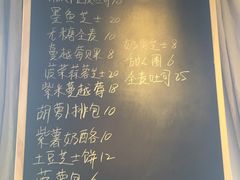 墨鱼芝士20
无糖全麦10
蔓越莓贝果8
菠菜蒜薯芝士20
紫米蔓越莓18
胡萝卜排包10
紫薯奶酪10
土豆芝士饼12
菠萝包6
芝士8
甜心圈6
全麦吐司25